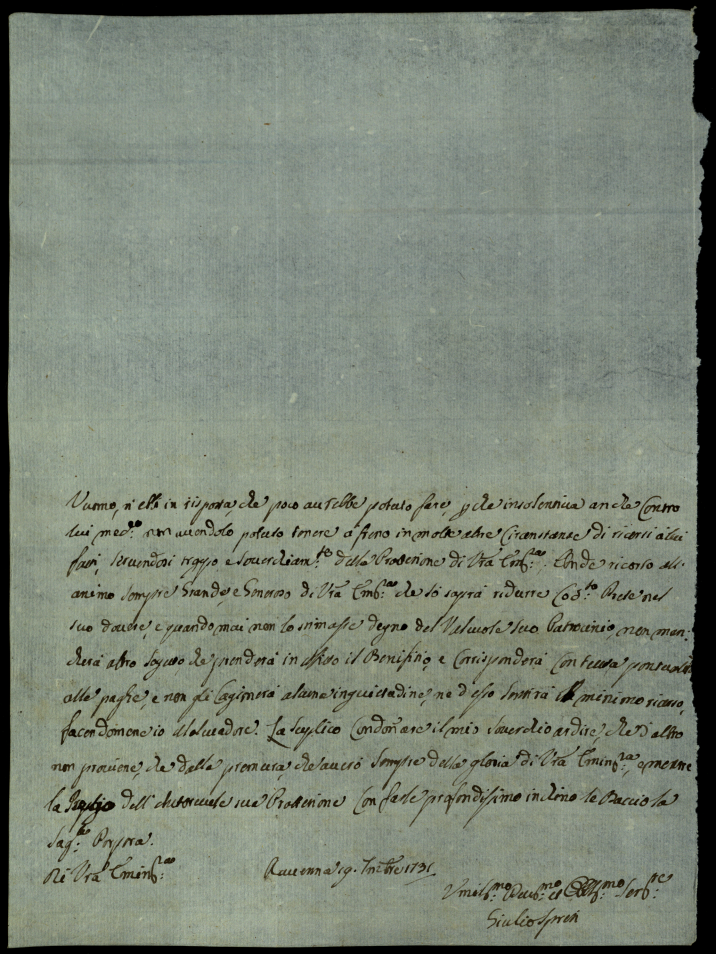 Vuomo, n'ebbi in risposta, che poco aurebbe potuto fare, che insolentiva anche contro
lui med.mo non avendolo potuto tenere a freno in molte altre circonstanze di ricorsi a lui
fatti, servendosi troppo e souerchiam.te della Protezione di Vra Em.za. Onde ricorro all'
animo sempre Grande, e Generoso di Vra Em.za che si saprà ridurre Cod.to Prete nel
suo douere, e quando mai non lo stimasse degno del Valeuole suo Patrocinio, non man:
cherà altro sogetto che prenderà in affitto il Benifitio, e corrisponderà con tutta pontualità
alle paghe, e non gli cagionerà alcuna inquietudine, ne d'esso sentirà il minimo ricorso,
facendomene io il maleuadore. La suplico condonare il mio souerchio ardire, che d'altro
non prouiene, che dalla premura, che auerò sempre della gloria di Vra Emin.za, e mentre
la suplico dell'Autoreuole sua Protezione con farle profondissimo inchino le Baccio la
Sag.ta Porpora.
Di Vra Emin.za
Rauenna 19. 1731
Umil.mo Deuo.mo et Obb.mo Ser.re
Giulio Spreti